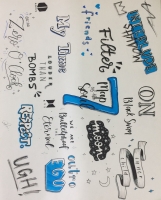 My Time
friends
Filter
ON
Black Swan
Zero O'Clock
LOUDER
THAN
BOMBS
Map
Soul
7
moon
RESPECT
we are
Bulletproof
Eternal
outro
EGO
UGH!